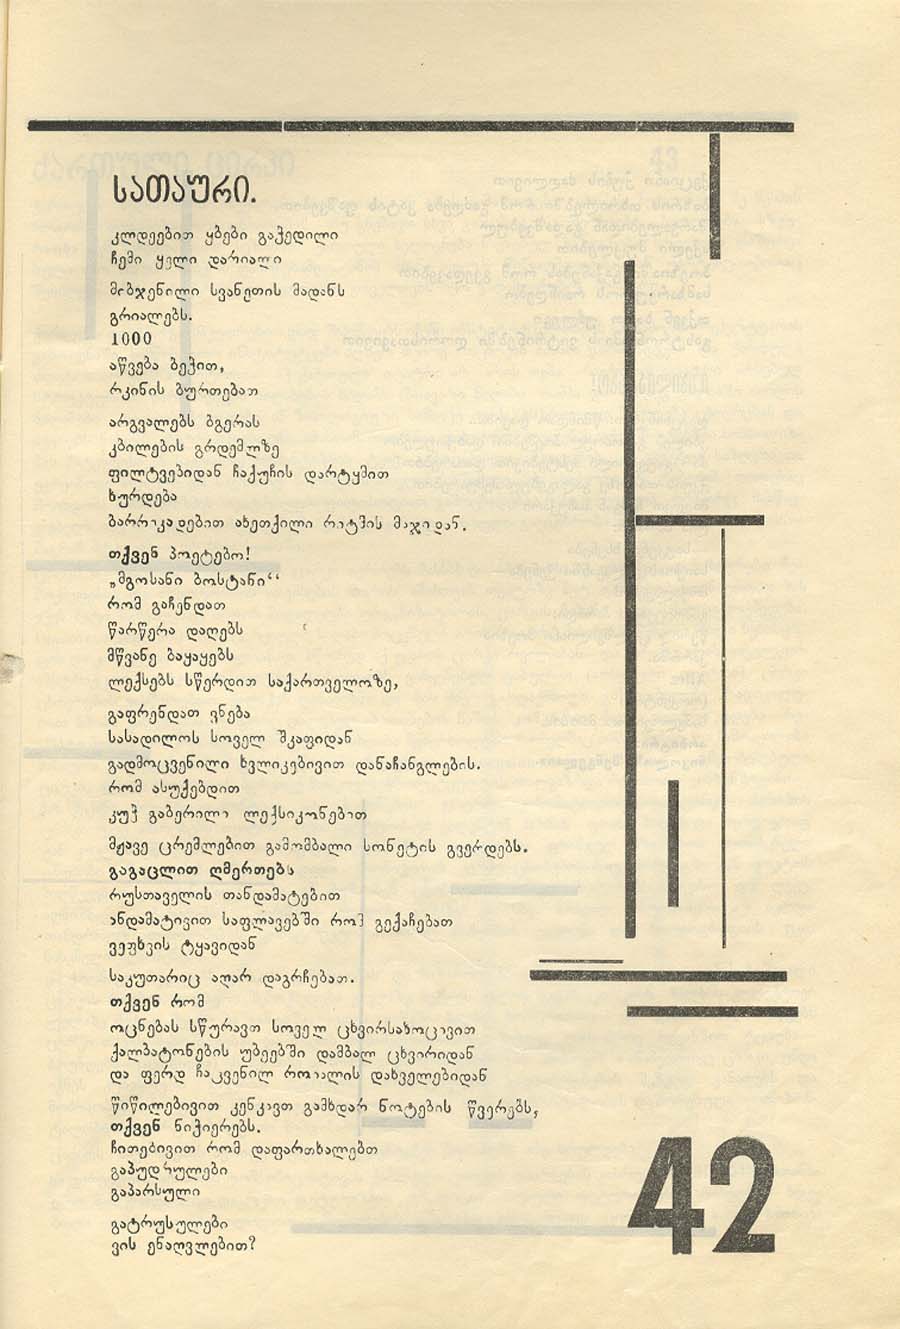 სათაური.
კლდეებით ყბები გაჭედილი
ჩემი ყელი დარიალი
მიბჯენილი სვანეთის მადანს
გრიალებს.
1000
აწვება ბეჭით,
რკინის ბურთებათ
არგვალებს ბგერას
კბილების გრდემლზე
ფილტვებიდან ჩაქუჩის დარტყმით
ხურდება
ბარრიკადებით ახეთქილი რიტმის მაჯიდან.
თქვენ პოეტებო!
„მგოსანი ბოსტანი“
რომ გაჩენდათ
წარწერა დაღებს
მწვანე ბაყაყებს
ლექსებს სწერდით საქართველოზე,
გაფრენდათ ვნება
სასადილოს სოველ შკაფიდან
გადმოცვენილი ხვლიკებივით დანაჩანგლების.
რომ ასუქებდით
კუჭ გაბერილი ლექსიკონებით
მჟავე ცრემლებით გამომბალი სონეტის გვერდებს.
გაგაცლით ღმერთებს
რუსთაველის თანდამატებით
ანდამატივით საფლავებში რომ გექაჩებათ
ვეფხვის ტყავიდან
საკუთარიც აღარ დაგრჩებათ.
თქვენ რომ
ოცნებას სწურავთ სოველ ცხვირსახოცივით
ქალბატონების უბეებში დამბალ ცხვირიდან
და ფერდ ჩაკვენილ როიალის დახველებიდან
წიწილებივით კენკავთ გამხდარ ნოტების წვერებს,
თქვენ ნიჭიერებს.
ჩიტებივით რომ დაფართხალებთ
გაპუდრულები
გაპარსული
გატრუსულები
ვის ენაღვლებით?
42